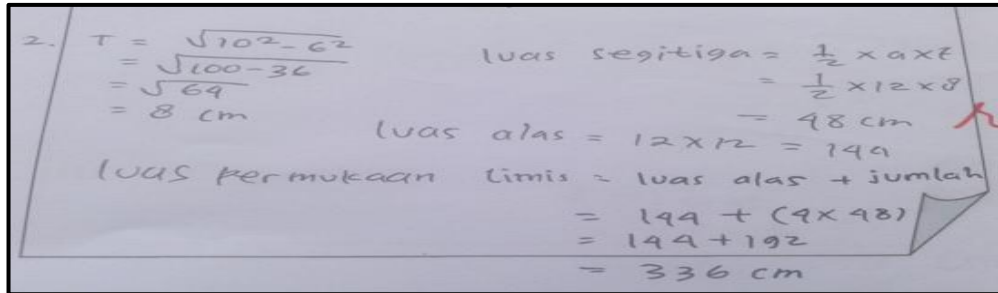 2. T = √10² - 6²
= √100 - 36
= √64
= 8 cm
luas segitiga = ½ × a × t
= ½ × 12 × 8
= 48 cm
luas alas = 12 × 12 = 144
luas permukaan limis = luas alas + jumlah
= 144 + (4 × 48)
= 144 + 192
= 336 cm